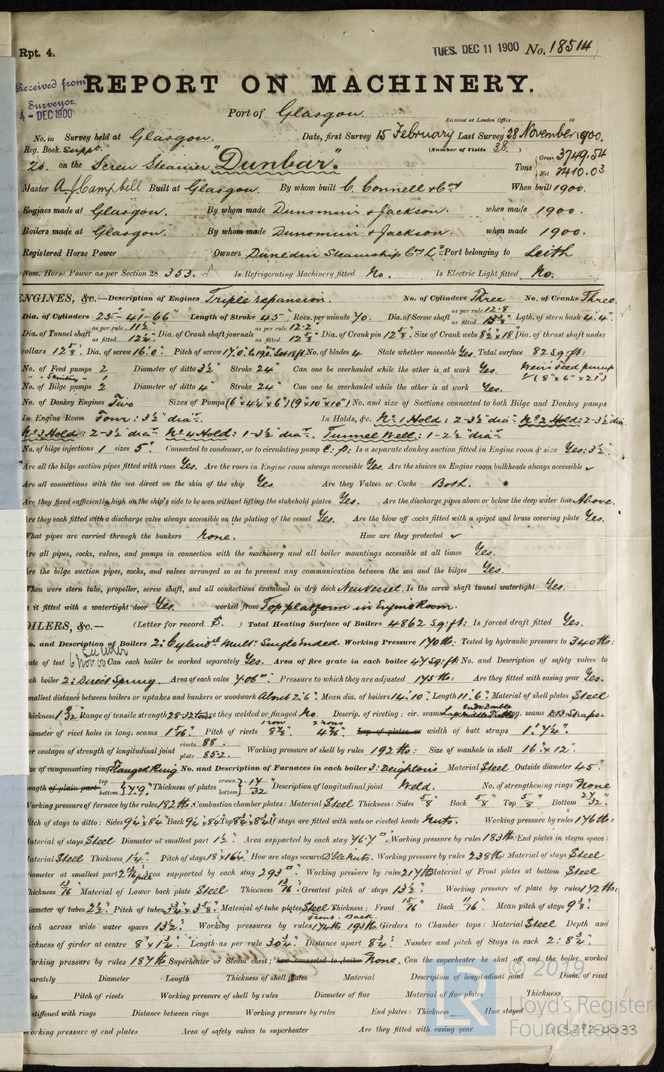 Rpt. 4.
TUES. DEC 11 1900 No. 18514
Received from Surveyor
4 - DEC 1900
REPORT ON MACHINERY.
Port of Glasgow
Received at London Office 18
No. in Survey held at Glasgow. Date, first Survey 15 February Last Survey 28 November 1900.
Reg. Book. Suppt. (Number of Visits 38.
20. on the Screw Steamer "Dunbar". Tons Gross 3749.54 Net 2410.03
Master A. J. Campbell Built at Glasgow. By whom built C. Connell & Coy When built 1900.
Engines made at Glasgow. By whom made Dunsmuir & Jackson. when made 1900.
Boilers made at Glasgow. By whom made Dunsmuir & Jackson. when made 1900.
Registered Horse Power Owners Dunedin Steamship Coy Ld. Port belonging to Leith
Nom. Horse Power as per Section 28 353. Is Refrigerating Machinery fitted No. Is Electric Light fitted No.
ENGINES, &c.—Description of Engines Triple expansion. No. of Cylinders Three No. of Cranks Three
Dia. of Cylinders 25"-41"-66" Length of Stroke 45" Revs. per minute 70. Dia. of Screw shaft as per rule 12.8 as fitted 13 1/2" Lgth. of stern bush 4.4"
Dia. of Tunnel shaft as per rule 11 1/2" as fitted 12 1/4" Dia. of Crank shaft journals as per rule 12.2" as fitted 12 5/8" Dia. of Crank pin 12 5/8" Size of Crank webs 8 1/2 x 18" Dia. of thrust shaft under
collars 12 5/8" Dia. of screw 16'0" Pitch of screw 17'0" to 19'0" No. of blades 4 State whether moveable Yes. Total surface 82 sq. ft.
No. of Feed pumps 2 Diameter of ditto 3 1/2" Stroke 24" Can one be overhauled while the other is at work Yes. Weir's Feed pumps
No. of Bilge pumps 2 Diameter of ditto 4 Stroke 24" Can one be overhauled while the other is at work Yes. (8" x 6" x 21")
No. of Donkey Engines Two Sizes of Pumps (6" x 4 1/4" x 6") (9" x 10" x 10") No. and size of Suctions connected to both Bilge and Donkey pumps
In Engine Room Four: 3 1/2" dia. In Holds, &c. No. 1 Hold: 2-3 1/2" dia. No. 2 Hold: 2-3 1/2" dia.
No. 3 Hold: 2-3 1/2" dia. No. 4 Hold: 1-3 1/2" dia. Tunnel Well: 1-2 1/2" dia.
No. of bilge injections 1 sizes 5". Connected to condenser, or to circulating pump C. p. Is a separate donkey suction fitted in Engine room & size Yes: 3 1/2"
Are all the bilge suction pipes fitted with roses Yes. Are the roses in Engine room always accessible Yes. Are the sluices on Engine room bulkheads always accessible ✓
Are all connections with the sea direct on the skin of the ship Yes. Are they Valves or Cocks Both.
Are they fixed sufficiently high on the ship's side to be seen without lifting the stokehold plates Yes. Are the discharge pipes above or below the deep water line Above.
Are they each fitted with a discharge valve always accessible on the plating of the vessel Yes. Are the blow off cocks fitted with a spigot and brass covering plate Yes.
What pipes are carried through the bunkers None. How are they protected ✓
Are all pipes, cocks, valves, and pumps in connection with the machinery and all boiler mountings accessible at all times Yes.
Are the bilge suction pipes, cocks, and valves arranged so as to prevent any communication between the sea and the bilges Yes.
When were stern tube, propeller, screw shaft, and all connections examined in dry dock New vessel Is the screw shaft tunnel watertight Yes.
Is it fitted with a watertight door Yes. worked from Top platform in Engine Room.
BOILERS, &c.— (Letter for record S) Total Heating Surface of Boilers 4862 sq. ft. Is forced draft fitted Yes.
No. and Description of Boilers 2: Cylindl. Mult. Single Ended. Working Pressure 170 lbs. Tested by hydraulic pressure to 340 lbs.
Date of test 6 Nov 00 Can each boiler be worked separately Yes. Area of fire grate in each boiler 47 sq. ft. No. and Description of safety valves to
each boiler 2: Direct Spring. Area of each valve 7.06" Pressure to which they are adjusted 175 lbs. Are they fitted with easing gear Yes.
Smallest distance between boilers or uptakes and bunkers or woodwork About 2'6". Mean dia. of boilers 14'10" Length 11'6" Material of shell plates Steel
Thickness 1 9/32 Range of tensile strength 28-32 tons Are they welded or flanged No. Descrip. of riveting: cir. seams End Double Lap Middle Treble long. seams D.B. Straps.
Diameter of rivet holes in long. seams 1 5/16" Pitch of rivets 8 7/8" 4 7/16" Lap of plates or width of butt straps 1' 7 1/4"
Per centages of strength of longitudinal joint rivets 88. plate 85.2 Working pressure of shell by rules 192 lbs. Size of manhole in shell 16" x 12"
Size of compensating ring Flanged Ring No. and Description of Furnaces in each boiler 3: Deighton's Material Steel Outside diameter 45"
Length of plain part top bottom 7'9" Thickness of plates crown bottom 17/32 Description of longitudinal joint Weld. No. of strengthening rings None
Working pressure of furnace by the rules 182 lbs. Combustion chamber plates: Material Steel Thickness: Sides 5/8" Back 5/8" Top 5/8" Bottom 27/32"
Pitch of stays to ditto: Sides 9 1/4" x 8 1/4" Back 9 1/4" x 8 1/4" Top 8 3/4" x 8 1/4" If stays are fitted with nuts or riveted heads Nuts. Working pressure by rules 176 lbs.
Material of stays Steel Diameter at smallest part 1 1/2" Area supported by each stay 76.7" Working pressure by rules 183 lbs. End plates in steam space:
Material Steel Thickness 1 1/4" Pitch of stays 18" x 16 1/4" How are stays secured Dble nuts. Working pressure by rules 238 lbs. Material of stays Steel
Diameter at smallest part Area supported by each stay 293" Working pressure by rules 217 lbs. Material of Front plates at bottom Steel
Thickness 13/16" Material of Lower back plate Steel Thickness 13/16" Greatest pitch of stays 13 1/2" Working pressure of plate by rules 172 lbs.
Diameter of tubes 2 1/2" Pitch of tubes 3 3/4" x 3 5/8" Material of tube plates Steel Thickness: Front 15/16" Back 11/16" Mean pitch of stays 9 3/8"
Pitch across wide water spaces 13 1/2" Working pressures by rules Front 174 lbs. Back 193 lbs. Girders to Chamber tops: Material Steel Depth and
thickness of girder at centre 8" x 1 1/4" Length as per rule 30 3/4" Distance apart 8 3/4" Number and pitch of Stays in each 2: 8 3/4"
Working pressure by rules 187 lbs. Superheater or Steam chest; how connected to boiler None. Can the superheater be shut off and the boiler worked
separately Diameter Length Thickness of shell plates Material Description of longitudinal joint Diam. of rivet
holes Pitch of rivets Working pressure of shell by rules Diameter of flue Material of flue plates Thickness
If stiffened with rings Distance between rings Working pressure by rules End plates: Thickness How stayed
Working pressure of end plates Area of safety valves to superheater Are they fitted with easing gear
© 2019
Lloyd's Register
Foundation